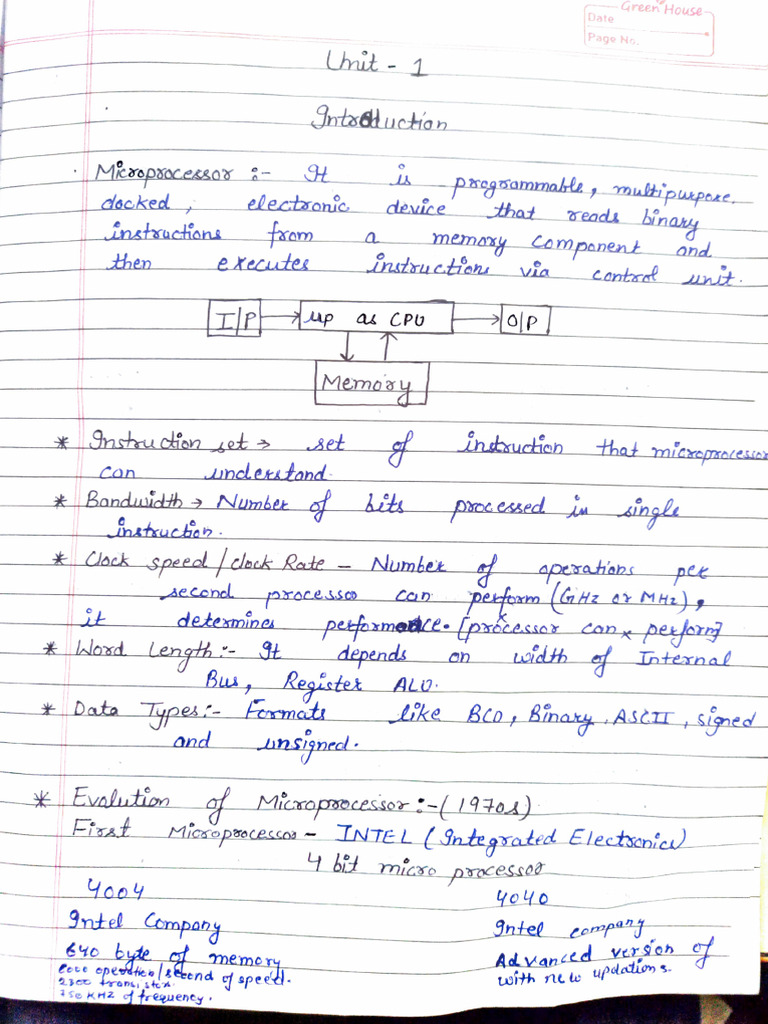 Green House
Date
Page No.
Unit - 1
Introduction
Microprocessor :- It is programmable, multipurpose
clocked, electronic device that reads binary
instructions from a memory component and
then executes instructions via control unit.
I/P → μp as CPU → O/P
Memory
* Instruction set → set of instruction that microprocessor
can understand.
* Bandwidth → Number of bits processed in single
instruction.
* Clock speed / Clock Rate - Number of operations per
second processor can perform (GHz or MHz),
it determines performance. [processor can perform]
* Word Length:- It depends on width of Internal
Bus, Register ALU.
* Data Types:- Formats like BCD, Binary, ASCII, signed
and unsigned.
* Evalution of Microprocessor:- (1970s)
First Microprocessor - INTEL (Integrated Electronics)
4 bit micro processor
4004
Intel Company
640 byte of memory
operation/second of speed.
2300 transistor
750 KHZ of frequency.
4040
Intel company
Advanced version of
with new updations.